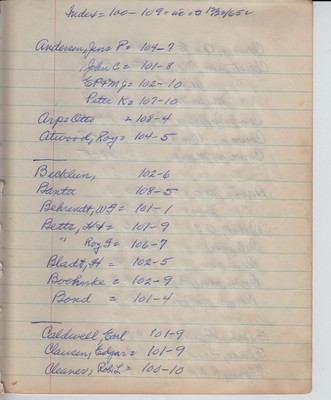 Index = 100 - 109 =
Andersen, Jens P = 104-7
, John C = 101-8
EP & M J = 102-10
Peter K = 107-10
Arp = Otto = 108-4
Atwood, Roy = 104-5
Becklun, 102-6
Banta 108-5
Behrendt, W F = 101-1
Bette, H H = 101-9
" Roy F = 106-7
Bladt, H = 102-5
Boehnke = 102-9
Bond = 101-4
Caldwell, Earl 101-9
Clausen, Edgar = 101-9
Cleaver, Robt L = 100-10